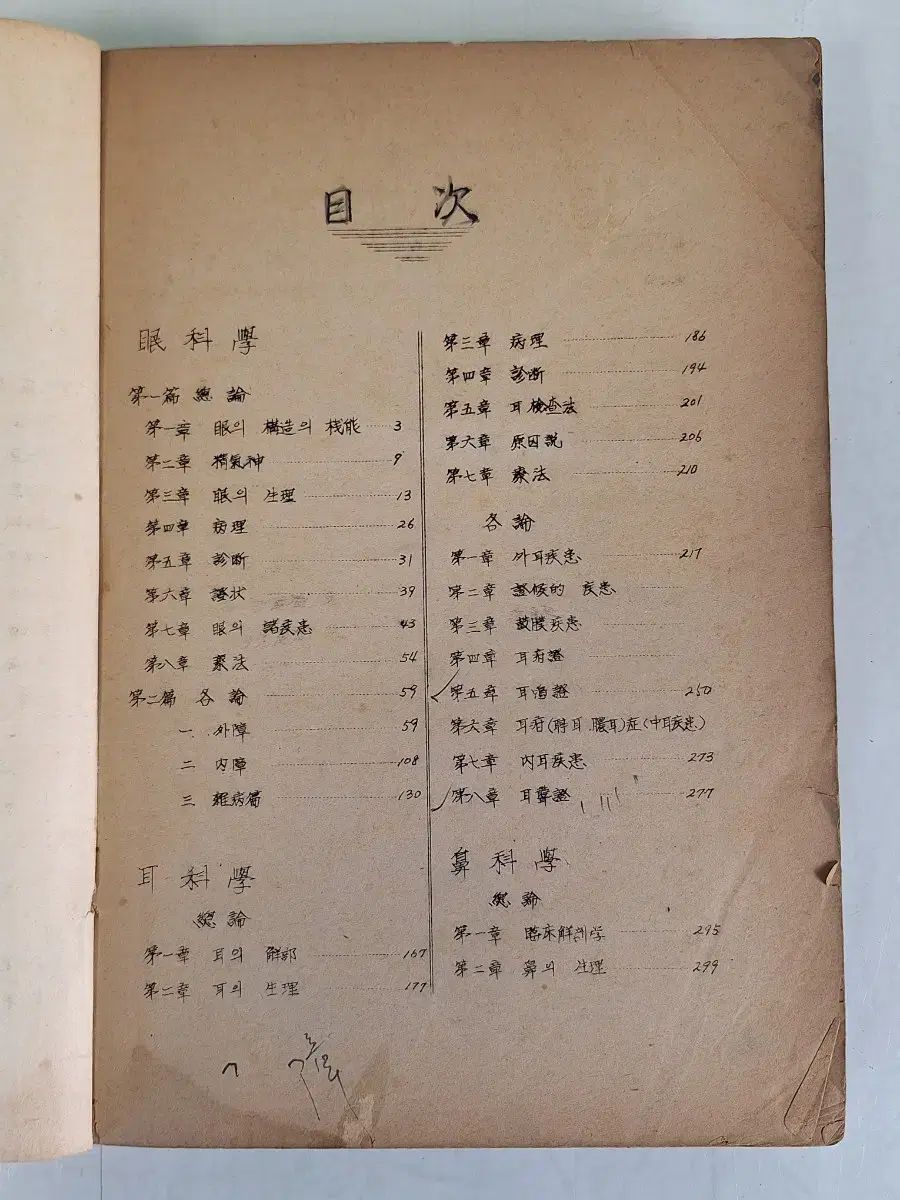 目 次
眼科學
第一篇 總論
第一章 眼의 構造의 栈能 3
第二章 精氣神 9
第三章 眼의 生理 13
第四章 病理 26
第五章 診断 31
第六章 證状 39
第七章 眼의 諸疾患 43
第八章 療法 54
第二篇 各論 59
一 外障 59
二 內障 108
三 雜病篇 130
耳科學
總論
第一章 耳의 解部 167
第二章 耳의 生理 177
第三章 病理 186
第四章 診断 194
第五章 耳檢查法 201
第六章 原因説 206
第七章 療法 210
各論
第一章 外耳疾患 217
第二章 證候的 疾患
第三章 鼓膜疾患
第四章 耳疳證
第五章 耳 證 250
第六章 耳疳(聤耳.膿耳)症(中耳疾患)
第七章 內耳疾患 273
第八章 耳聾證 277
鼻科學
總論
第一章 臨床解剖学 295
第二章 鼻의 生理 299